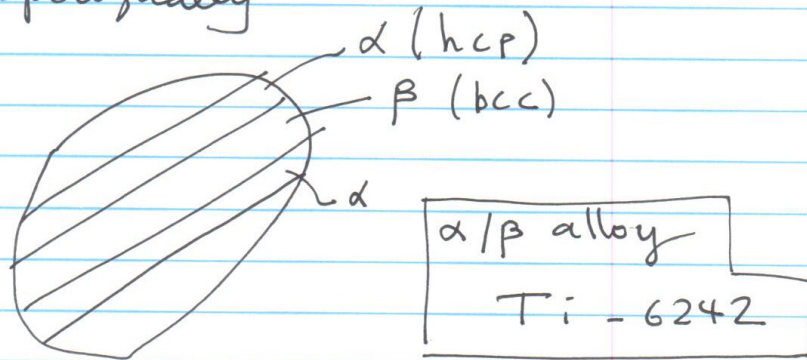 α (hcp)
β (bcc)
α
α/β alloy
Ti - 6242